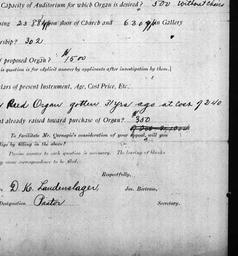 Capacity of Auditorium for which Organ is desired? 500 without choir
floor of Church and 630 in Gallery
ership? 302
proposed Organ? $1500
is question is for explicit answer by applicants after investigation by them.)
lars of present Instrument, Age, Cost Price, Etc.
Reed Organ gotten 31 yrs ago at cost of 240
nt already raised toward purchase of Organ? $350
To facilitate Mr. Carnegie's consideration of your appeal, will you
lige by filling in the above?
Precise answer to each question is necessary. The leaving of blanks
Respectfully,
D. K. Laudenslager
Jas. Bertram,
Designation. Pastor
Secretary.